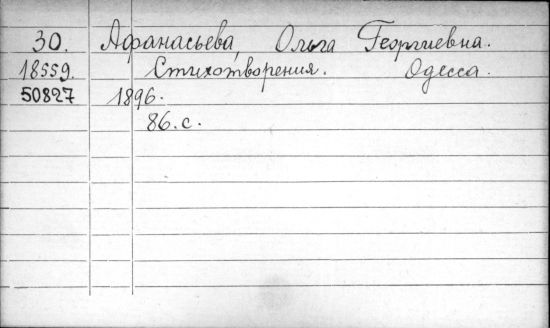 30. Афанасьева, Ольга Георгиевна.
18559. Стихотворения. Одесса.
50827 1896.
86. с.